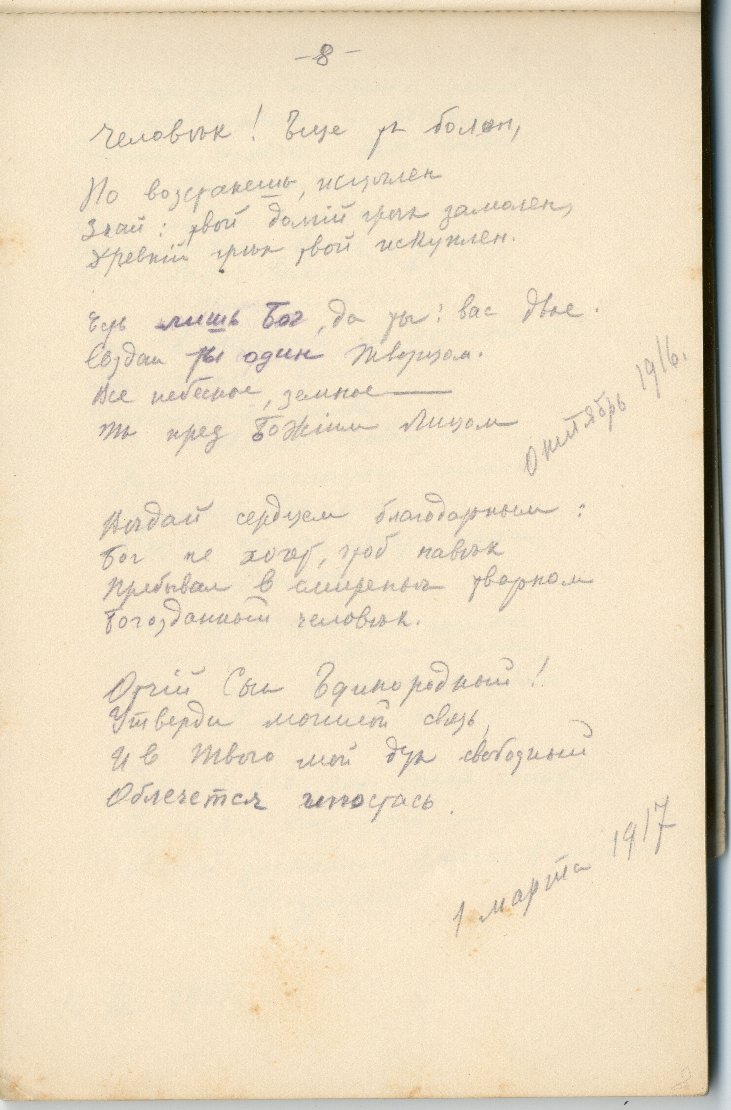 – 8 –
Человѣк! Еще ты болен,
Но возстанешь, исцѣлен
Знай: твой долгій грѣх замолен,
Древній грѣх твой искуплен.
Есть лишь Бог, да ты: вас двое.
Создан ты один Творцом.
Все небесное, земное —
Ты пред Божіим Лицом
октябрь 1916.
сердцем благодарным:
Бог не хочет, чтоб навѣк
Пребывал в смиреньи тварном
Богозданный человѣк.
Отчій Сын Единородный!
Утверди мольбой связь,
И в Твою мой дух свободный
Облечется ипостась.
1 марта 1917